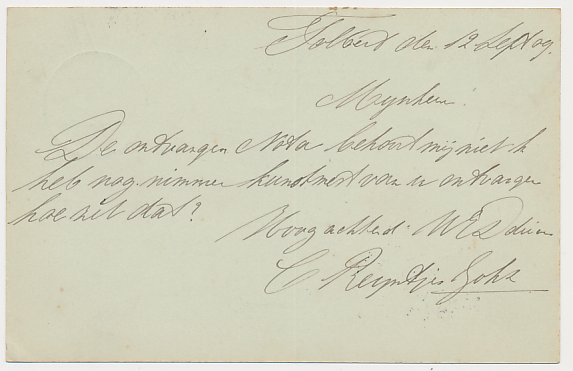 Tolbert den 12 Sept 09.
Mynheer.
De ontvangen Nota behoort mij niet k
heb nog nimmer kunstmest van u ontvangen
hoe zit dat?
Hoogachtend. UEd dien
C Reyntjes Johz